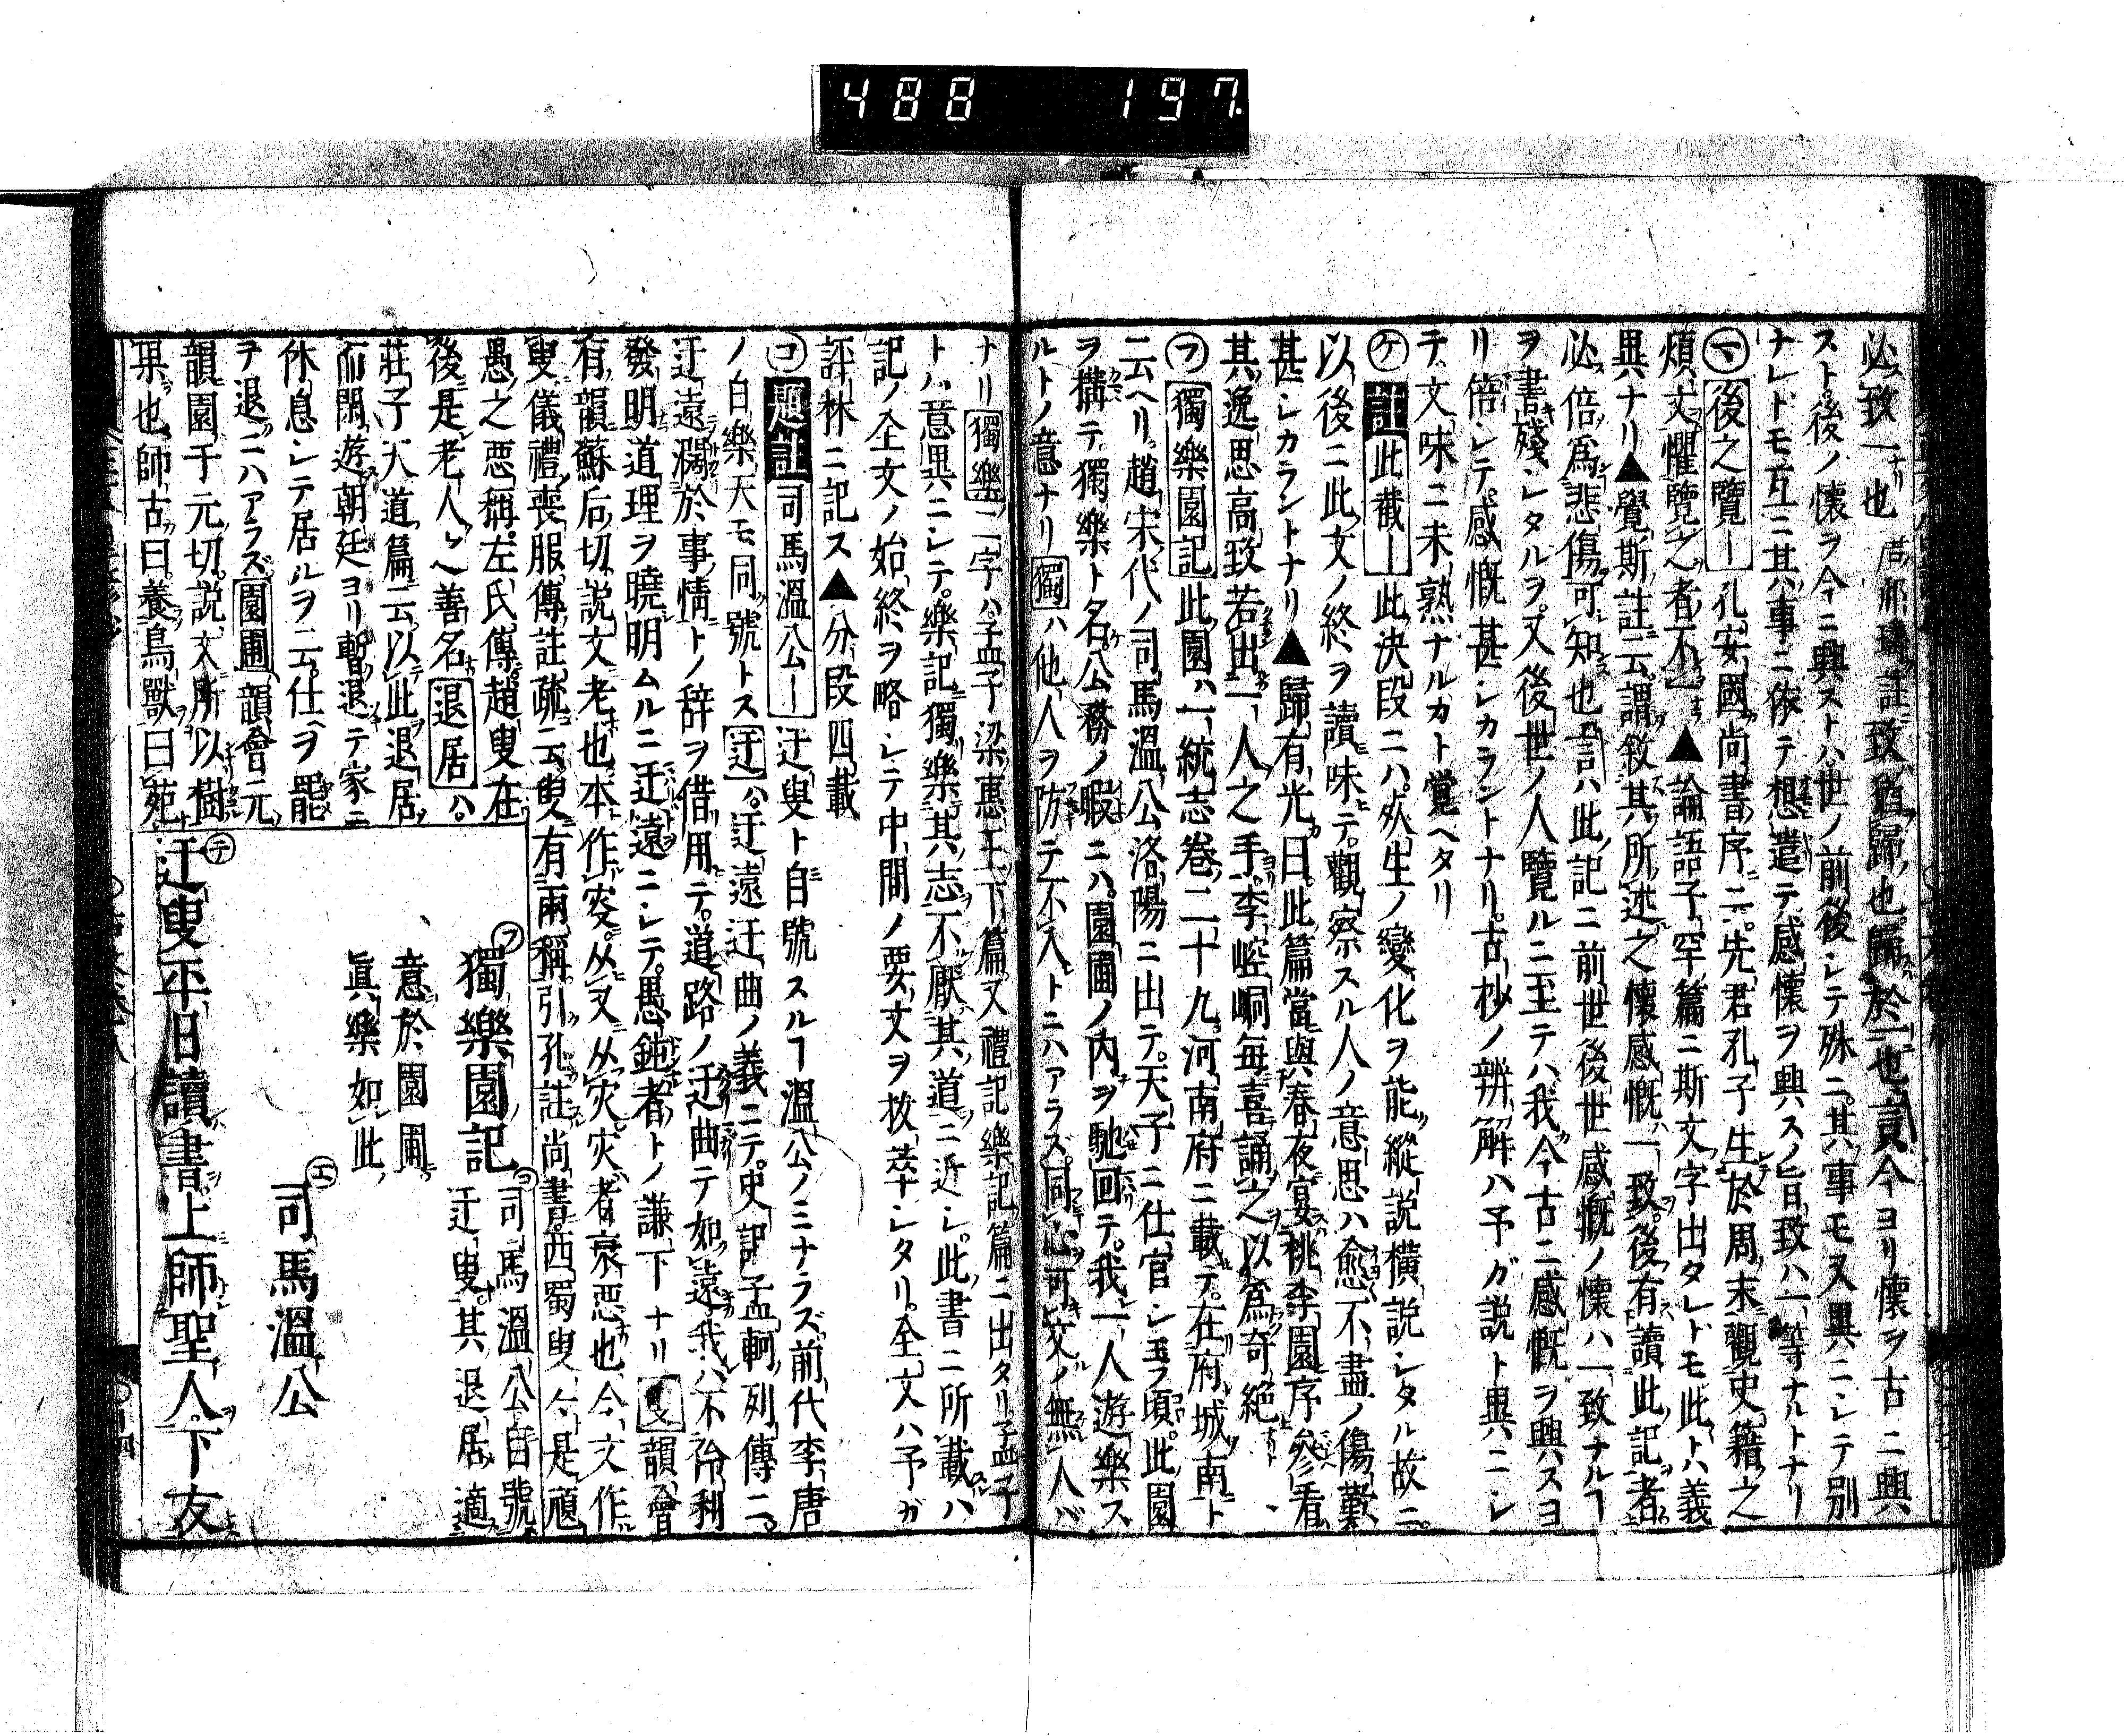 488 197
必致一也 註致猶歸也歸於一也貢今ヨリ懷ヲ古ニ興
スト後ノ懷ラ今ニ興ストハ世ノ前後シテ殊ニ其事モ又異ニシテ別
ナレドモ互ニ其事ニ依テ想遣テ感懷ヲ興スノ旨致ハ一等ナルトナリ
㋮後之覽ー孔安國尚書序ニ先君孔子生於周末觀史籍之
煩文懼覽之者不一▲論語子罕篇ニ斯文字出タレドモ此トハ義
異ナリ▲覺斯註云謂敘其所述之懷感慨一致後有讀此記者
必倍爲悲傷可知也言ハ此記ニ前世後世感慨ノ懷ハ一致ナルヿ
ヲ書殘シタルヲ又後世ノ人覽ルニ至テハ我今古ニ感慨ヲ興スヨ
リ倍シテ感慨甚シカラントナリ古杪ノ辨解ハ予ガ説ト異ニシ
テ文味ニ未熟ナルカト覚ヘタリ
㋘註此截ー此決段ニハ死生ノ變化ヲ能縱説橫説シタル故ニ
以後ニ此文ノ終ヲ讀味テ觀察スル人ノ意思ハ愈不盡ノ傷歎
甚シカラントナリ▲歸有光曰此篇當與春夜宴桃李園序參看
其逸思高致若出一人之手李崆峒每喜誦之以爲奇絶
㋫獨樂園記此園ハ一統志卷二十九河南府ニ載テ在府城南ト
云ヘリ趙宋代ノ司馬溫公洛陽ニ出テ天子ニ仕官シ玉フ頃此園
ヲ構テ獨樂ト名公務ノ暇ニハ園圃ノ内ヲ馳回テ我一人遊樂ス
ルトノ意ナリ獨ハ他人ヲ防テ不入トニハアラズ同心可交ノ無人ガ
ナリ獨樂二字ハ孟子梁惠王下篇又禮記樂記篇ニ出タリ孟子
トハ意異ニシテ樂記獨樂其志不厭其道ニ近シ此書ニ所載ハ
記ノ全文ノ始終ヲ略シテ中間ノ要文ヲ拔萃シタリ全文ハ予ガ
評林ニ記ス▲分段四載
㋙題註司馬溫公ー迂叟ト自號スルヿ溫公ノミナラズ前代李唐
ノ白樂天モ同號トス迂ハ迂遠迂曲ノ義ニテ史記孟軻列傳ニ
迂遠濶於事情トノ辞ヲ借用テ道路ノ迂曲テ如遠我ハ不怜利
發明道理ヲ曉明ムルニ迂遠ニシテ愚鈍者トノ謙下ナリ叟韻會
有韻蘇后切説文老也本作叜从又从灾灾者衰惡也今文作
叟儀禮喪服傳註疏云叟有兩稱引孔註尚書西蜀叟今是頑
愚之惡稱左氏傳趙叟在
後是老人之善名退居ハ
莊子天道篇云以此退居
而閒遊朝廷ヨリ暫退テ家ニ
休息シテ居ルヲ云仕ヲ罷
テ退ニハアラズ園圃韻會元
韻園于元切説文所以樹
果也師古曰養鳥獸曰苑
㋫獨樂園記
㋙司馬溫公自號
迂叟其退居適
意於園圃
眞樂如此
㋓司馬溫公
㋢迂叟平日讀書上師聖人下友